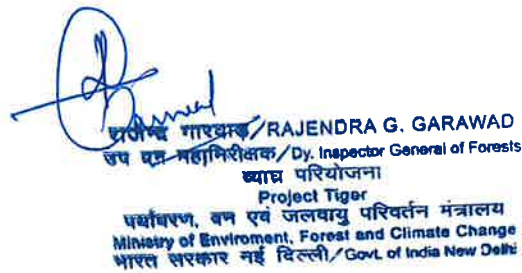 राजेन्द्र गारवाड/RAJENDRA G. GARAWAD
उप वन महानिरीक्षक/Dy. Inspector General of Forests
व्याघ्र परियोजना
Project Tiger
पर्यावरण, वन एवं जलवायु परिवर्तन मंत्रालय
Ministry of Enviroment, Forest and Climate Change
भारत सरकार नई दिल्ली/Govt. of India New Delhi